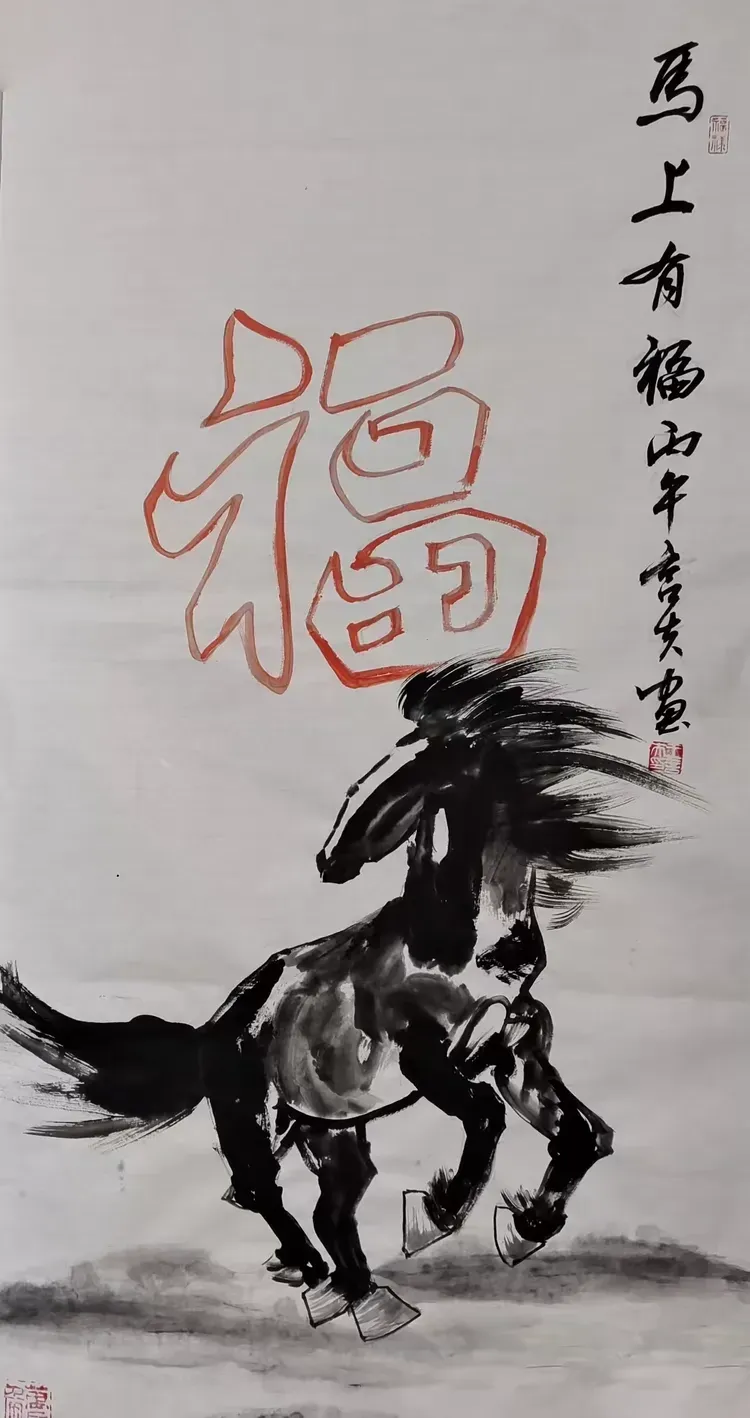 馬上有福丙午吉夫畫
福